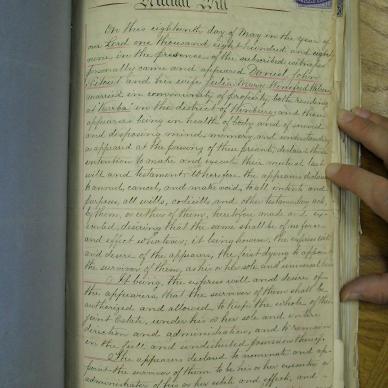 Mutual Will
On this eighteenth day of May in the year of
our Lord one thousand eight hundred and eighty
nine in the presence of the subscribed witnesses
personally came and appeared Daniel John
and his wife
married in community of property, both residing
at in the district of and these
appearers being in health of body and of sound
and disposing mind, memory, and understanding
as appeared at the passing of these presents, declared their
intention to make and execute their mutual last
will and testament. Wherefore the appearers declared
to annul, cancel, and make void, to all intents and
purposes, all wills, codicils and other testamentary acts,
by them, or either of them, heretofore made and exe-
cuted, desiring that the same shall be of no force
and effect whatever; it being however, the express will
and desire of the appearers, the first dying to appoint
the survivor of them, as his or her sole and universal heir
It being, the express will and desire of
the appearers, that the survivor of them shall be
authorized and allowed, to keep the whole of their
joint Estate, under his or her sole and entire
direction and administration, and to remain
in the full and undisturbed possession thereof.
The appearers declared to nominate and ap-
point the survivor of them to be his or her executor
administrator of his or her estate and effects, and